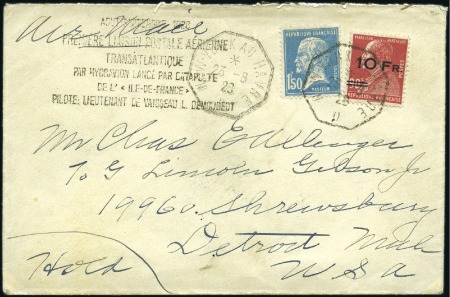 Air Mail
AOUT-SEPTEMBRE 1928
PREMIÈRE LIAISON POSTALE AÉRIENNE
TRANSATLANTIQUE
PAR HYDRAVION LANCÉ PAR CATAPULTE
DE L' "ILE-DE-FRANCE"
PILOTE: LIEUTENANT DE VAISSEAU L. DEMOUGEOT
AU HAVRE
23-8
28
POSTES
1F50
PASTEUR
10 FR.
Mr Chas
To G Lincoln Gibson Jr
19960 Shrewsbury
Detroit Mich
Hold
U S A